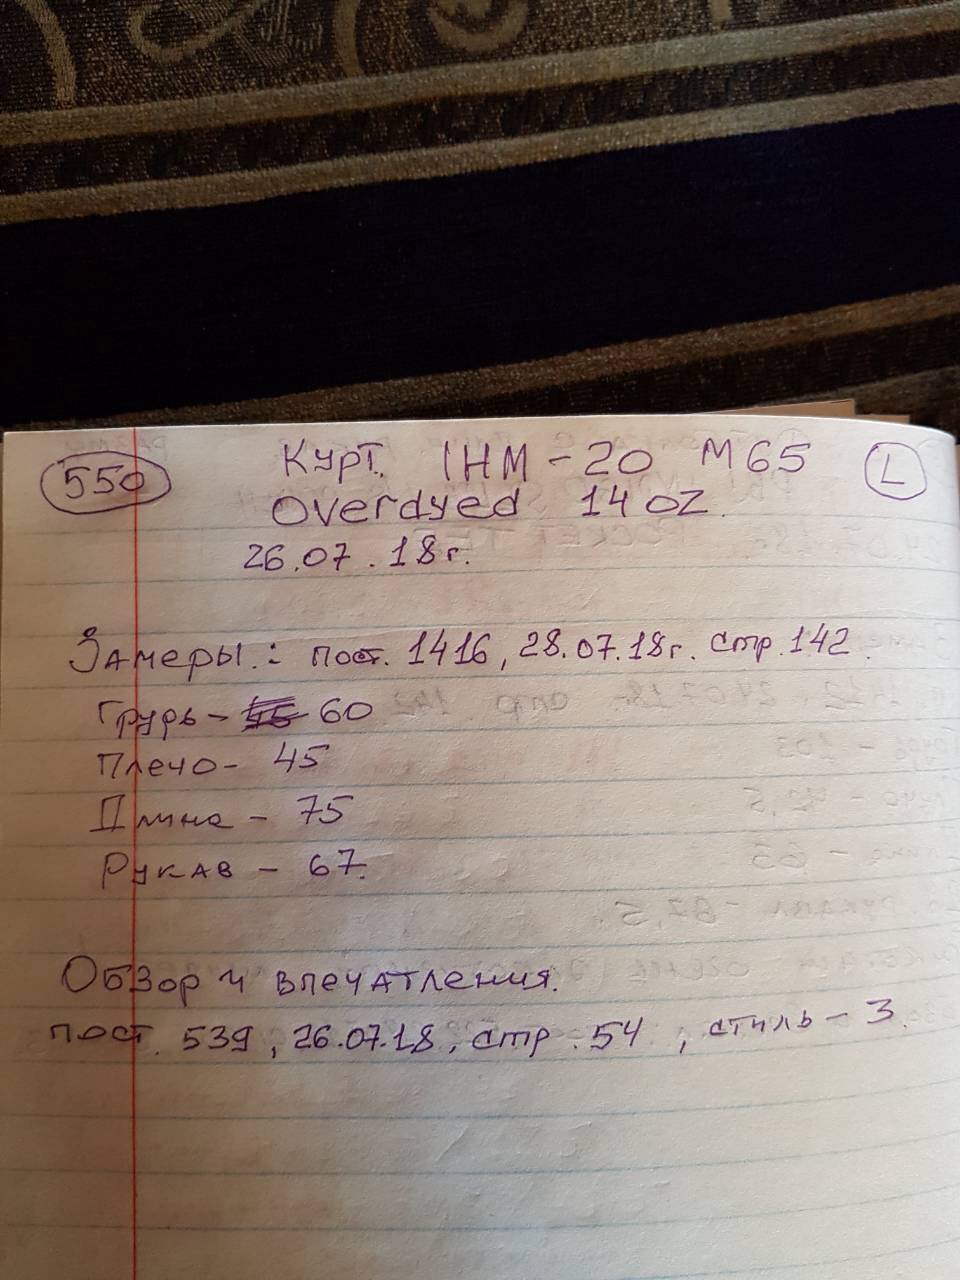 550 Курт. IHM-20 M65 L
Overdyed 14 oz.
26.07.18г.
Замеры.: пост. 1416, 28.07.18г. стр. 142.
Грудь - 60
Плечо - 45
Длина - 75
Рукав - 67.
Обзор и впечатления.
пост. 539, 26.07.18, стр. 54, стиль - 3.